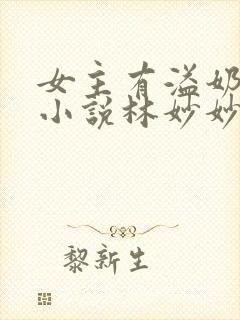 女主有溢奶
小说林妙妙
黎新生